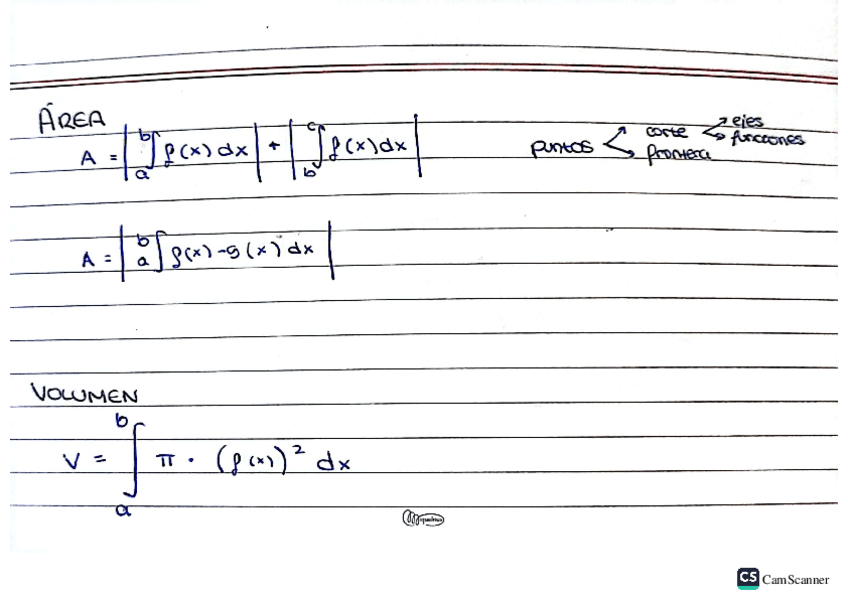 ÁREA
A = | a∫b f(x) dx | + | b∫c f(x) dx |
puntos
corte
ejes
funciones
frontera
A = | a∫b f(x) - g(x) dx |
VOLUMEN
V = a∫b π · (f(x))² dx
CS CamScanner